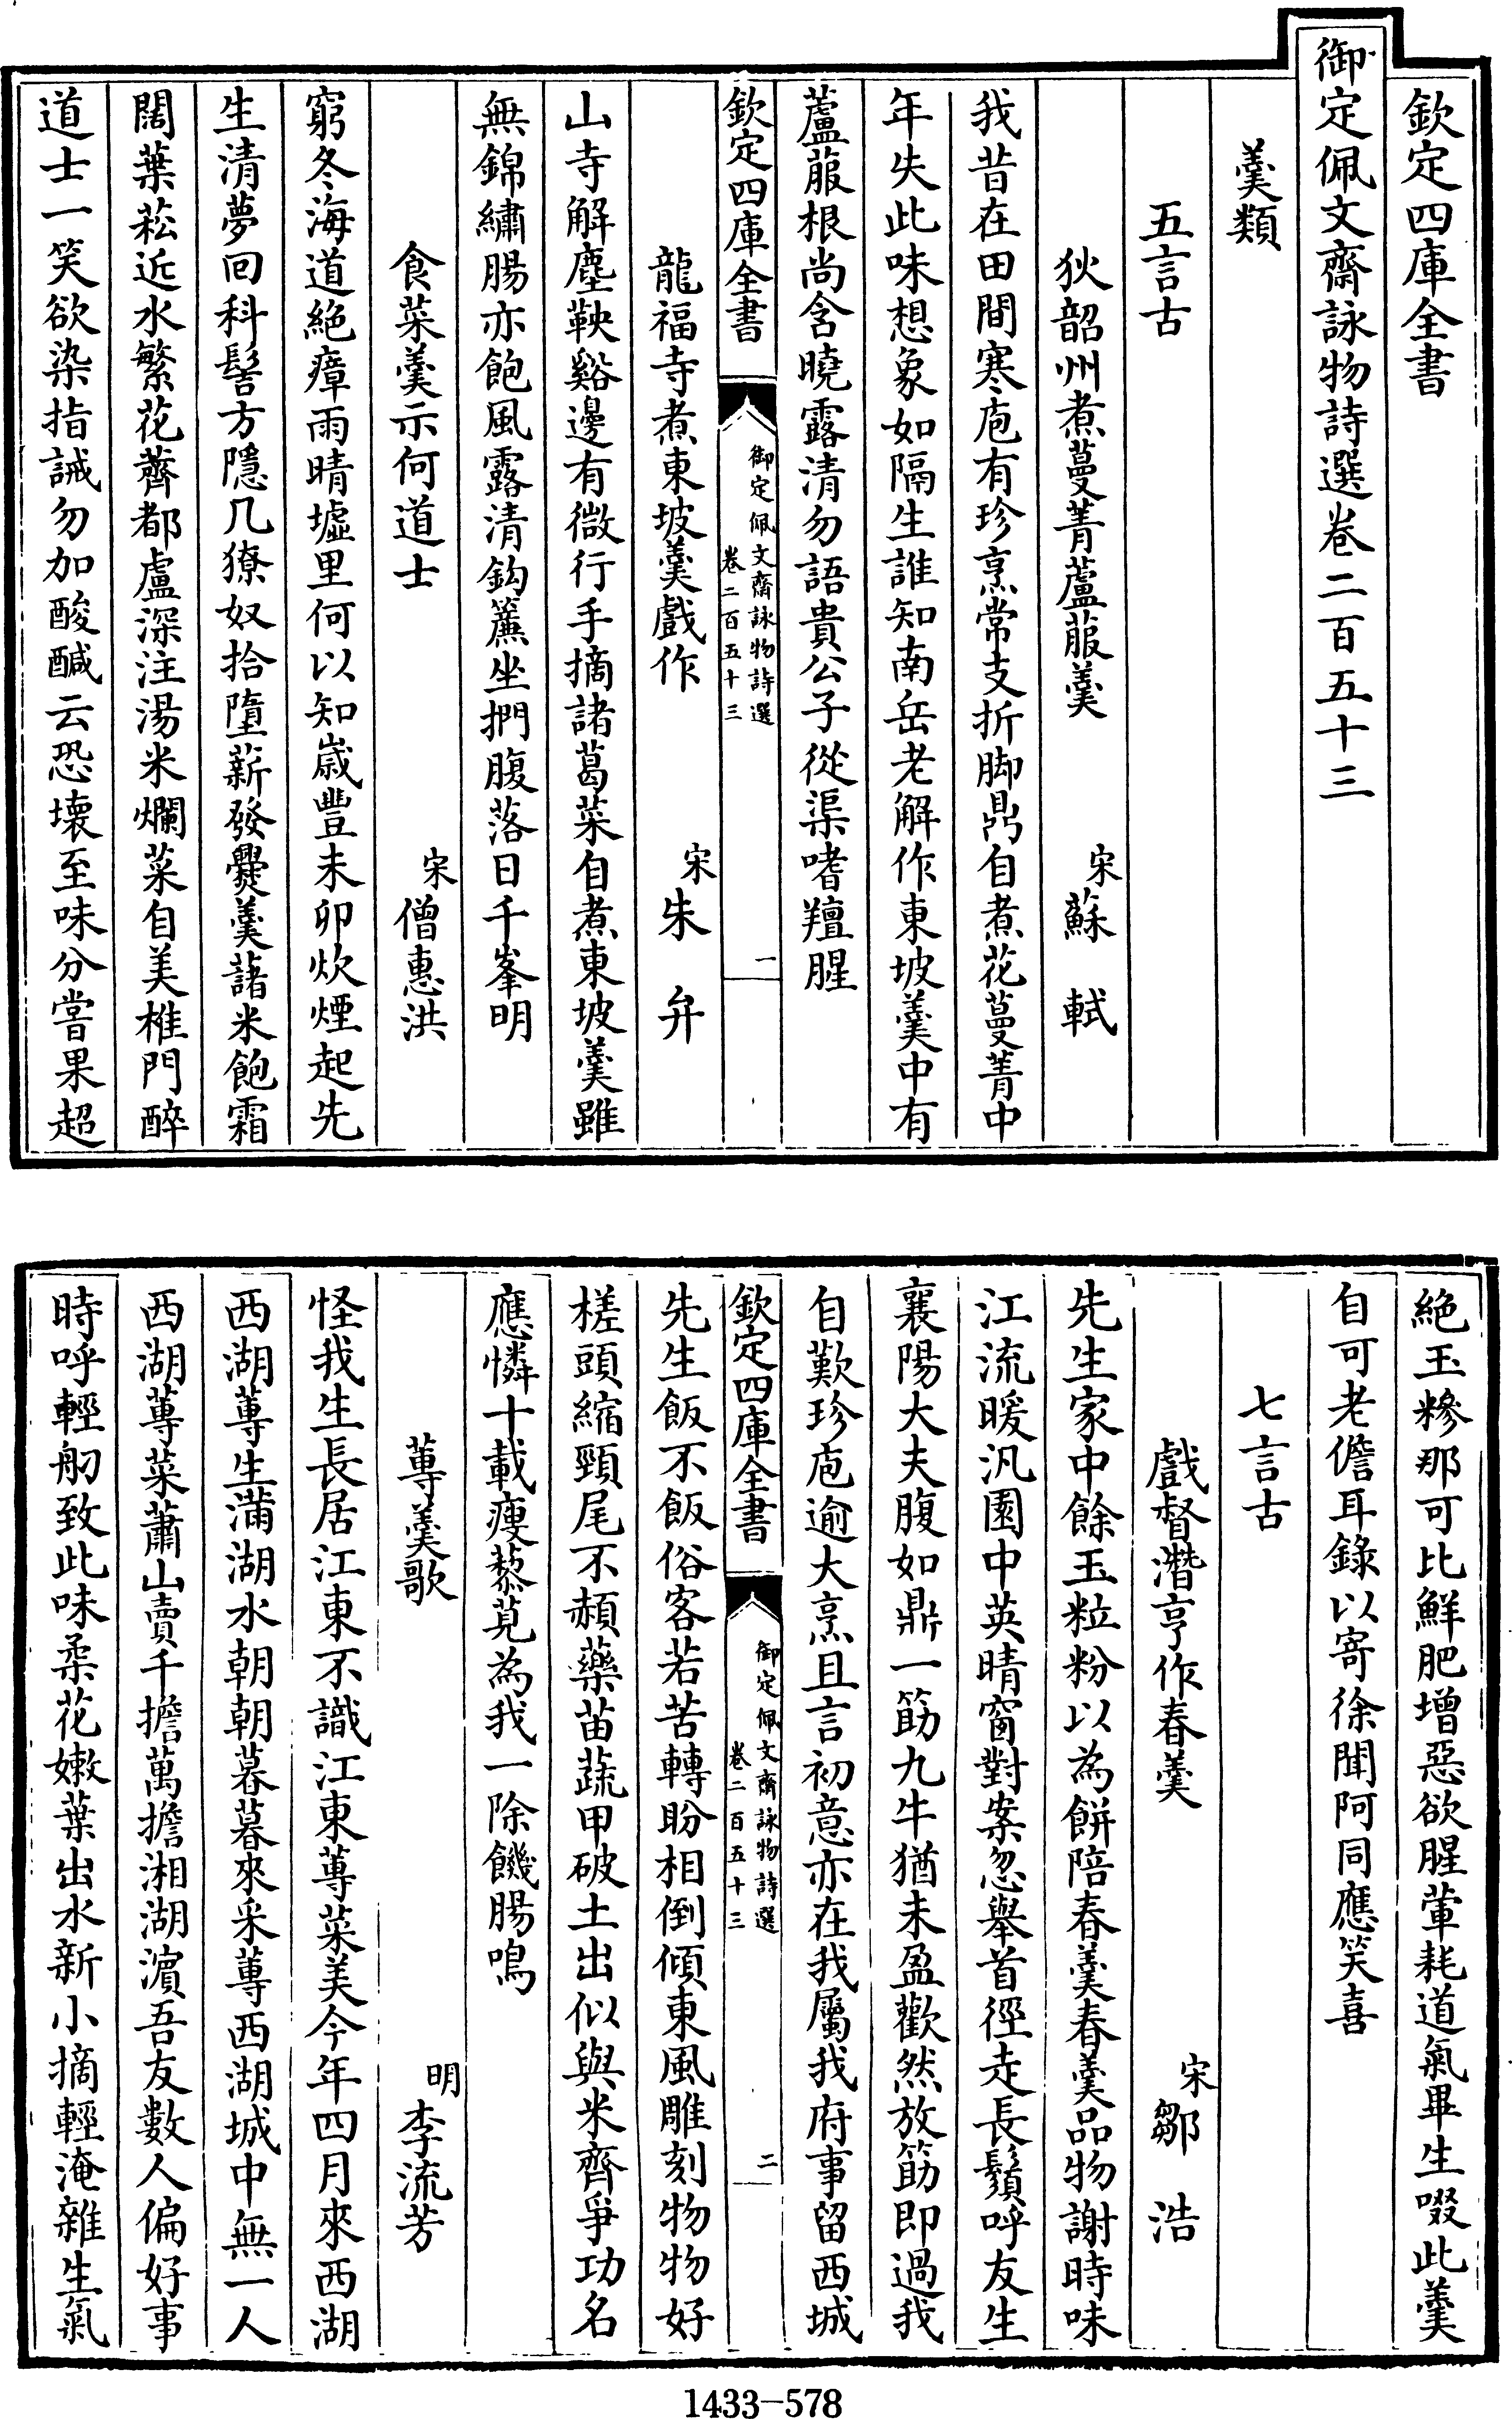 欽定四庫全書
御定佩文齋詠物詩選卷二百五十三
羹類
五言古
狄韶州煮蔓菁蘆菔羹 宋蘇軾
我昔在田間寒庖有珍烹常支折脚鼎自煮花蔓菁中
年失此味想象如隔生誰知南岳老解作東坡羹中有
蘆菔根尚含曉露清勿語貴公子從渠嗜羶腥
欽定四庫全書 御定佩文齋詠物詩選 卷二百五十三 一
龍福寺煮東坡羹戲作 宋朱弁
山寺解塵鞅谿邊有微行手摘諸葛菜自煮東坡羹雖
無錦繡腸亦飽風露清鈎簾坐捫腹落日千峯明
食菜羹示何道士 宋僧惠洪
窮冬海道絕瘴雨晴墟里何以知歲豐未卯炊煙起先
生清夢回科髻方隱几獠奴拾墮薪發爨羹藷米飽霜
闊葉菘近水繁花薺都盧深注湯米爛菜自美椎門醉
道士一笑欲染指誡勿加酸鹹云恐壞至味分嘗果超
絕玉糝那可比鮮肥增惡欲腥葷耗道氣畢生啜此羹
自可老儋耳錄以寄徐聞阿同應笑喜
七言古
戲督潛亨作春羹 宋鄒浩
先生家中餘玉粒粉以為餅陪春羹春羹品物謝時味
江流暖汎園中英晴窗對案忽舉首徑走長鬚呼友生
襄陽大夫腹如鼎一筯九牛猶未盈歡然放筯即過我
自歎珍庖逾大烹且言初意亦在我屬我府事留西城
欽定四庫全書 御定佩文齋詠物詩選 卷二百五十三 二
先生飯不飯俗客若苦轉盼相倒傾東風雕刻物物好
槎頭縮頸尾不赬藥苗蔬甲破土出似與米齊爭功名
應憐十載瘦藜莧為我一除饑腸鳴
蓴羹歌 明李流芳
怪我生長居江東不識江東蓴菜美今年四月來西湖
西湖蓴生滿湖水朝朝暮暮來采蓴西湖城中無一人
西湖蓴菜蕭山賣千擔萬擔湘湖濵吾友數人偏好事
時呼輕舠致此味柔花嫩葉出水新小摘輕淹雜生氣
1433-578